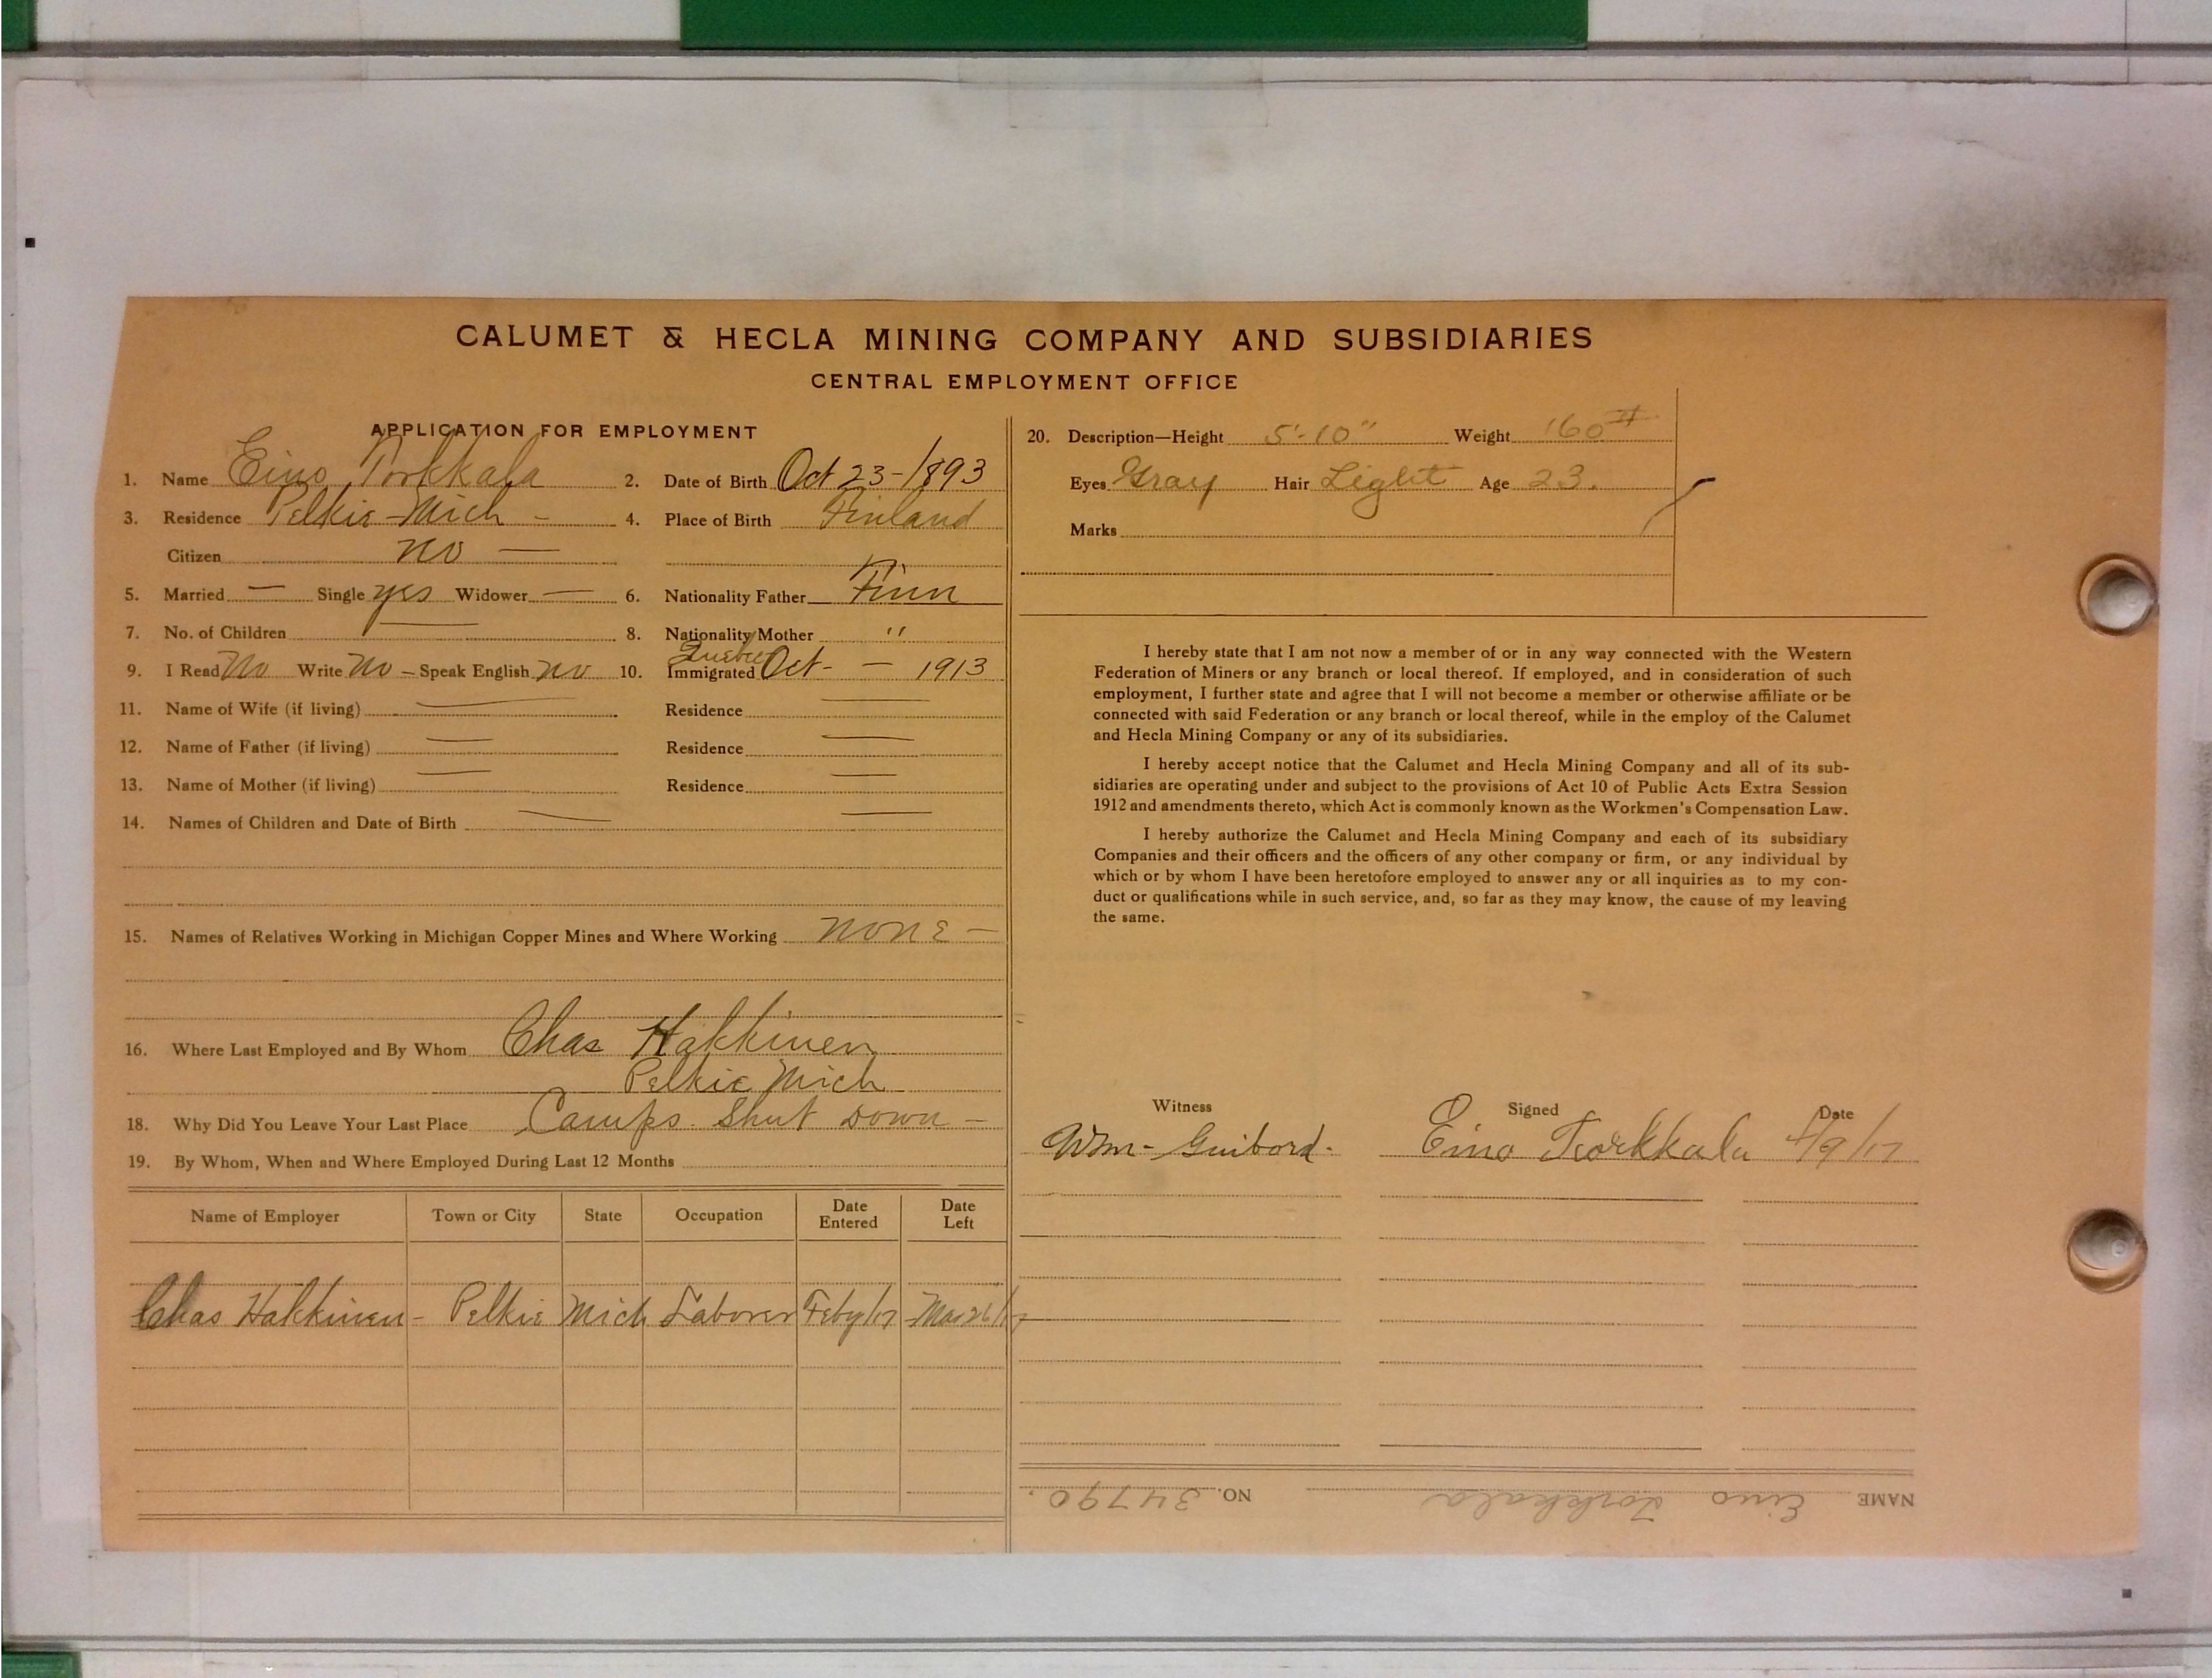 CALUMET & HECLA MINING COMPANY AND SUBSIDIARIES
CENTRAL EMPLOYMENT OFFICE
APPLICATION FOR EMPLOYMENT
1. Name Eino Torkkala 2. Date of Birth Oct 23-1893
3. Residence Pelkie-Mich - 4. Place of Birth Finland
Citizen no —
5. Married — Single yes Widower — 6. Nationality Father Finn
7. No. of Children 8. Nationality Mother "
Quebec
9. I Read No Write No - Speak English no 10. Immigrated Oct - — 1913
11. Name of Wife (if living) — Residence —
12. Name of Father (if living) — Residence —
13. Name of Mother (if living) — Residence —
14. Names of Children and Date of Birth — —
15. Names of Relatives Working in Michigan Copper Mines and Where Working none -
16. Where Last Employed and By Whom Chas Hakkinen
Pelkie Mich
18. Why Did You Leave Your Last Place Camps. Shut Down -
19. By Whom, When and Where Employed During Last 12 Months
Name of Employer Town or City State Occupation Date Entered Date Left
Chas Hakkinen - Pelkie Mich Laborer Feby/17 Mar 26/17
20. Description—Height 5'-10" Weight 160#
Eyes Gray Hair Light Age 23.
Marks
I hereby state that I am not now a member of or in any way connected with the Western
Federation of Miners or any branch or local thereof. If employed, and in consideration of such
employment, I further state and agree that I will not become a member or otherwise affiliate or be
connected with said Federation or any branch or local thereof, while in the employ of the Calumet
and Hecla Mining Company or any of its subsidiaries.
I hereby accept notice that the Calumet and Hecla Mining Company and all of its sub-
sidiaries are operating under and subject to the provisions of Act 10 of Public Acts Extra Session
1912 and amendments thereto, which Act is commonly known as the Workmen's Compensation Law.
I hereby authorize the Calumet and Hecla Mining Company and each of its subsidiary
Companies and their officers and the officers of any other company or firm, or any individual by
which or by whom I have been heretofore employed to answer any or all inquiries as to my con-
duct or qualifications while in such service, and, so far as they may know, the cause of my leaving
the same.
Witness Signed Date
Wm- Guibord. Eino Torkkala 4/9/17
NAME Eino Torkkala NO. 34790.